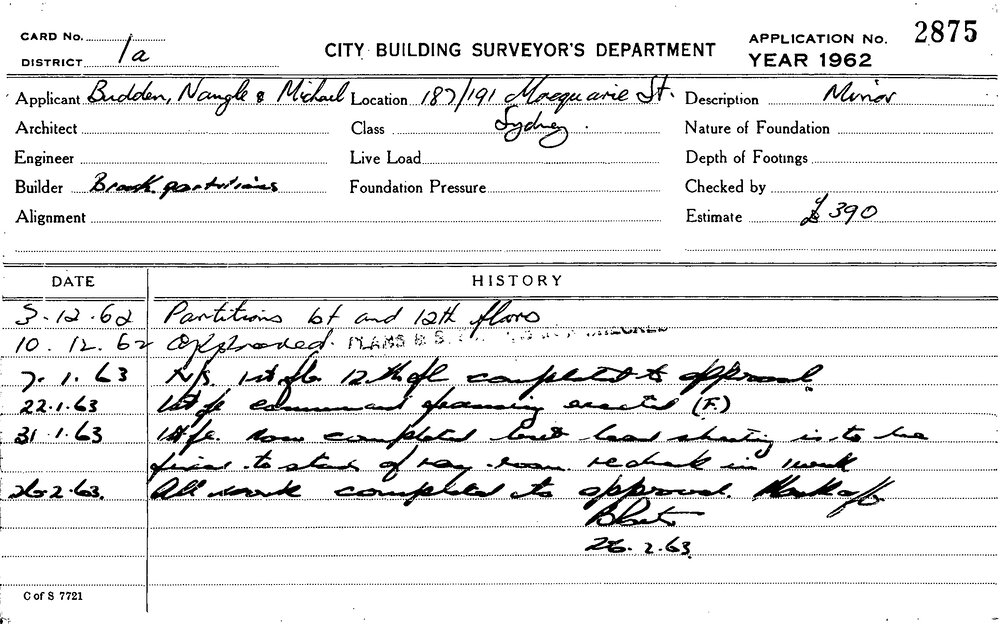 CARD No.
DISTRICT 1a
CITY BUILDING SURVEYOR'S DEPARTMENT
APPLICATION No. 2875
YEAR 1962
Applicant Budden, Nangle & Michael Location 187/191 Macquarie St. Description Minor
Architect Class Sydney. Nature of Foundation
Engineer Live Load Depth of Footings
Builder partitions Foundation Pressure Checked by
Alignment Estimate £390
DATE HISTORY
3.12.62 Partitions 1st and 12th floors
10.12.62 Approved. PLANS & S
7.1.63 N/S. 1st fl. 12th fl completed to approval
22.1.63 1st fl framing erected (F.)
31.1.63 1st fl. now completed but lead sheeting is to be
fixed to of ray room. recheck in 1 week
26.2.63. All work completed to approval. Mark off
26.2.63.
C of S 7721